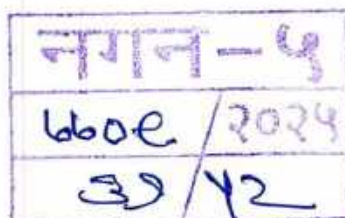 नगन - ५
७७०९ / २०२५
/ ५२